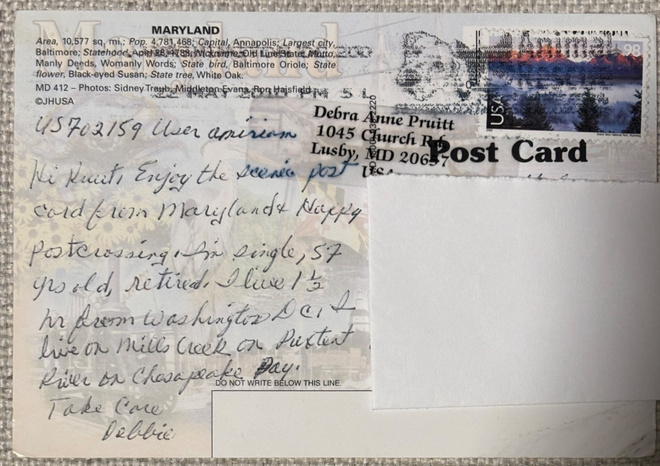 MARYLAND
Area, 10,577 sq. mi.; Pop. 4,781,468; Capital, Annapolis; Largest city,
Baltimore; Statehood, April 28, 1788; Nickname, Old Line State; Motto,
Manly Deeds, Womanly Words; State bird, Baltimore Oriole; State
flower, Black-eyed Susan; State tree, White Oak.
MD 412 – Photos: Sidney Traub, Middleton Evans, Ron Hajsfield
©JHUSA
22 MAY 2010 PM 5 L
98
USA
Debra Anne Pruitt
1045 Church Rd
Lusby, MD 20657
USA
Post Card
US702159 User amiriam
Hi Enjoy the scenic post
card from Maryland & Happy
Postcrossing. Im single, 57
yrs old, retired. I live 1 1/2
hr from Washington D C, I
live on Mills Creek on
River on Chesapeake Bay.
Take Care
Debbie
DO NOT WRITE BELOW THIS LINE.